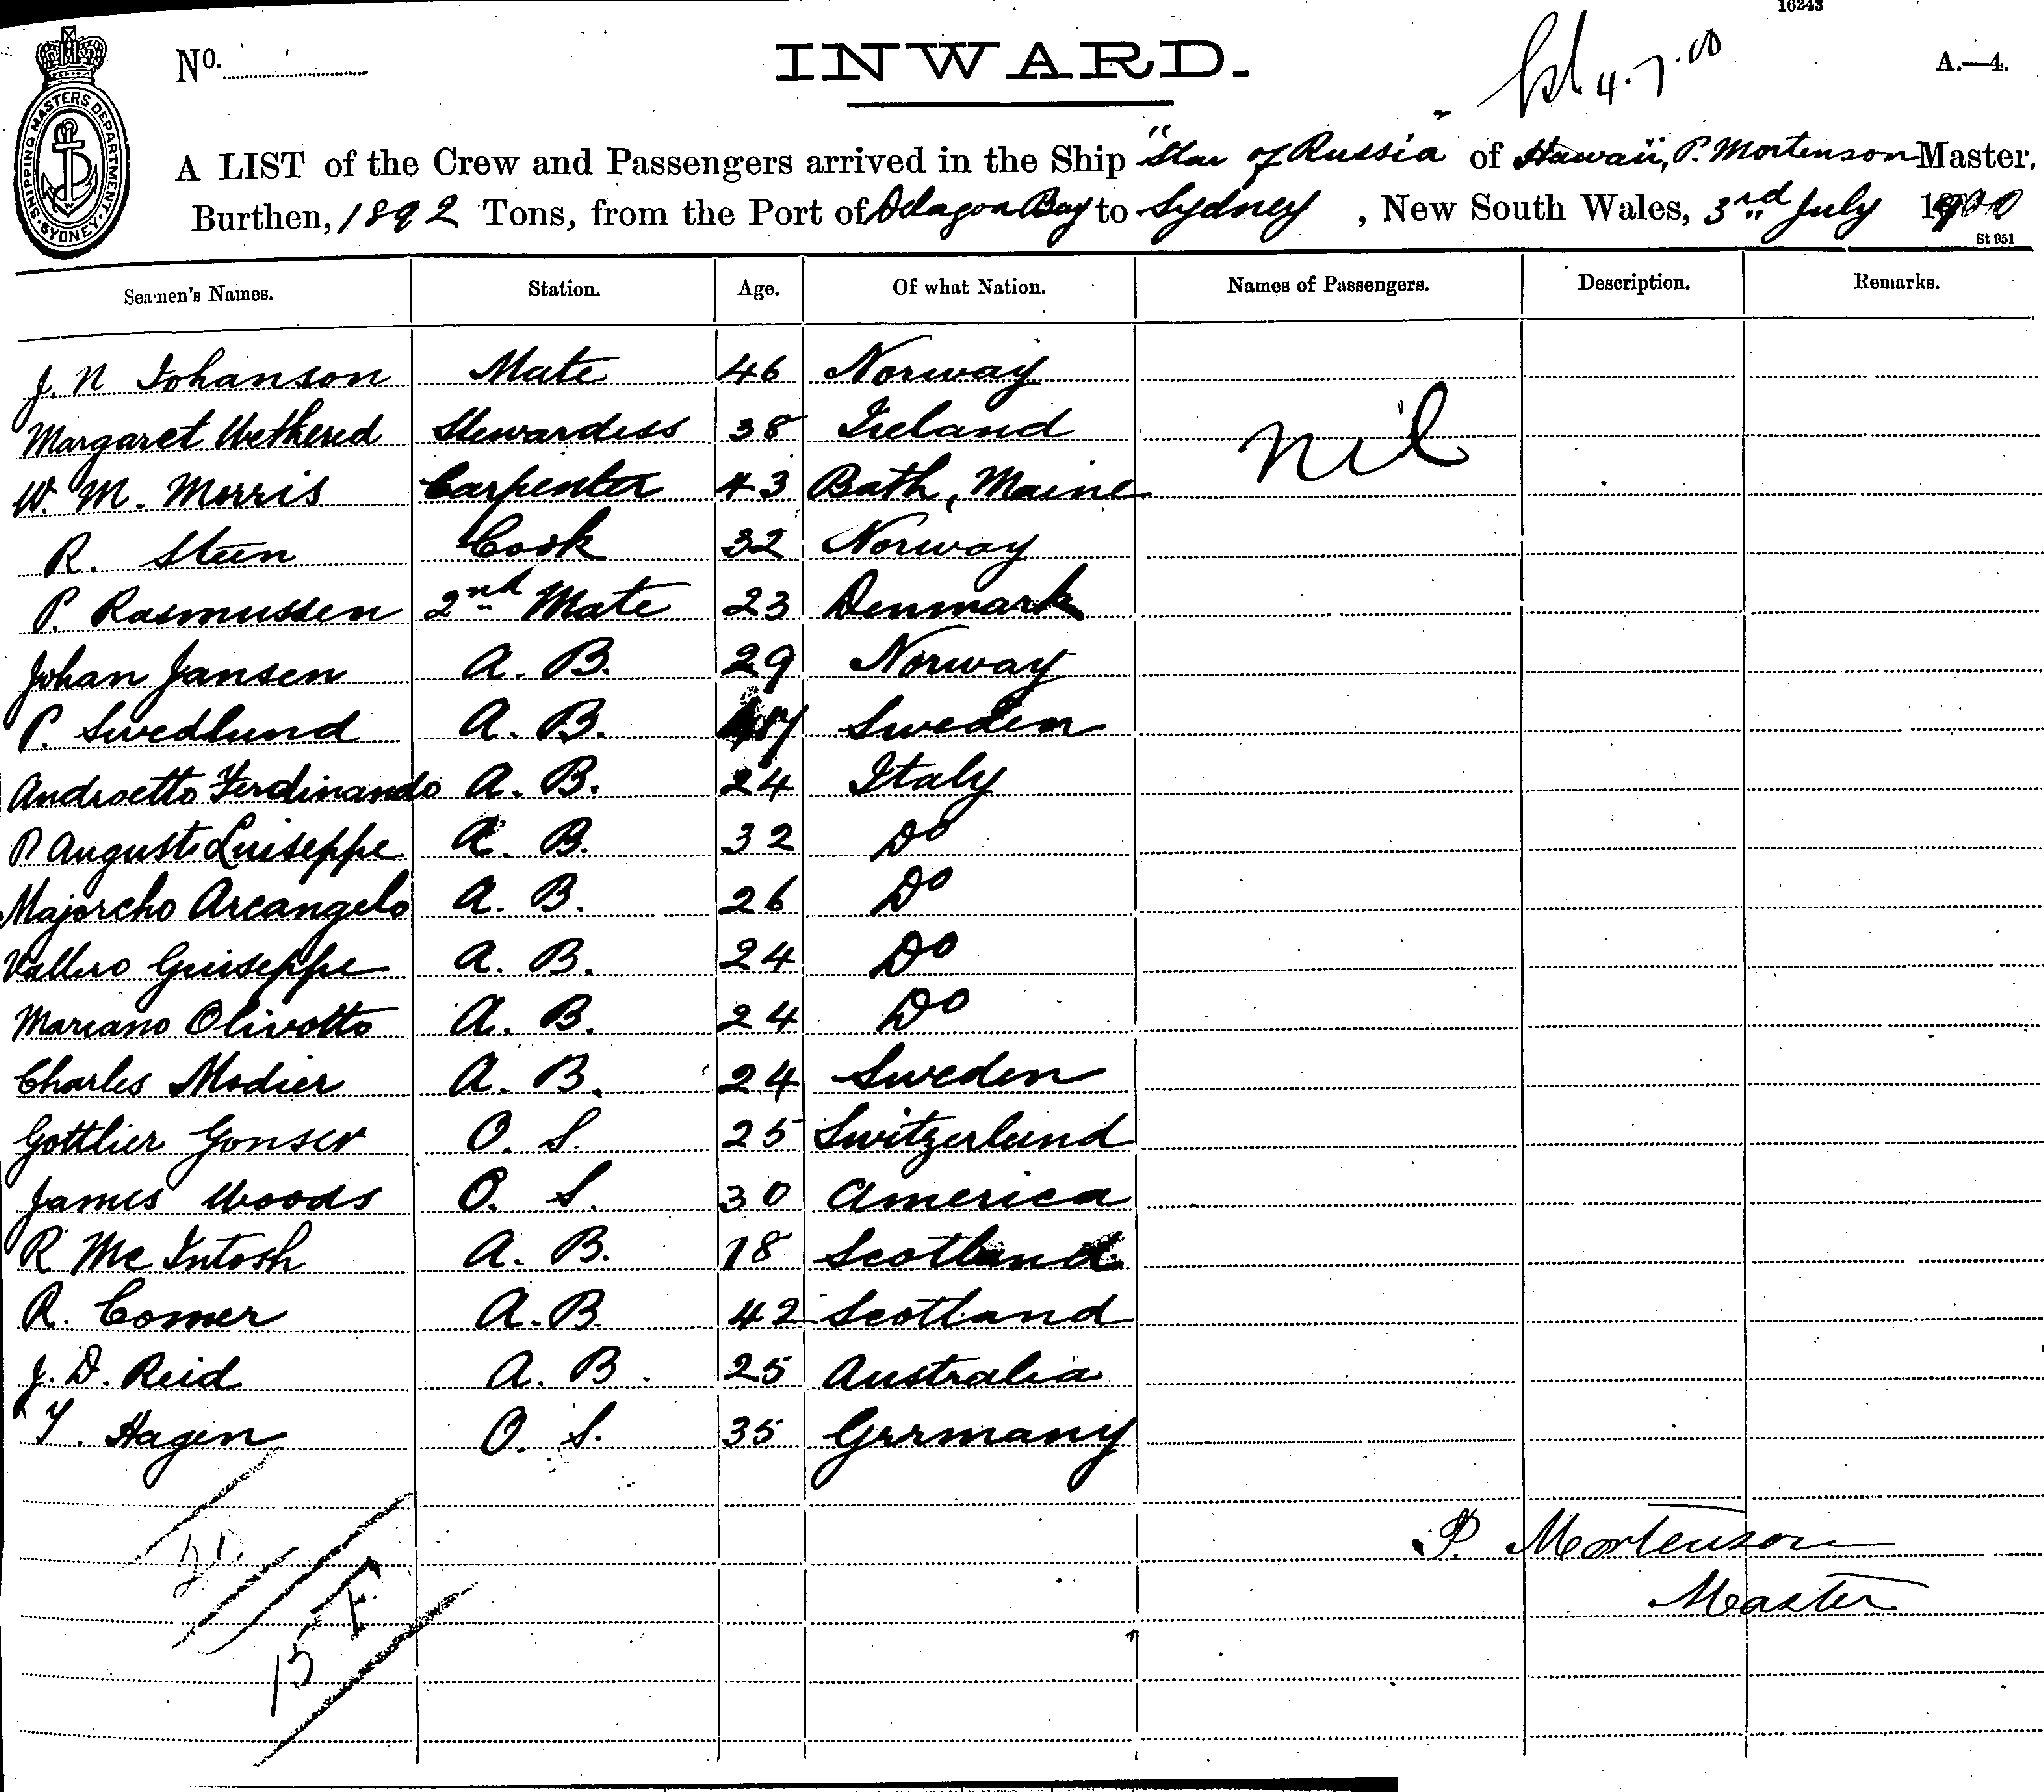 16243
No.
INWARD.
4.7.00
A.—4.
SHIPPING MASTERS DEPARTMENT. SYDNEY.
A LIST of the Crew and Passengers arrived in the Ship "Star of Russia" of Hawaii, P. Mortenson Master,
Burthen, 1892 Tons, from the Port of Delagoa Bay to Sydney, New South Wales, 3rd July 1900
St 951
Seamen's Names. Station. Age. Of what Nation. Names of Passengers. Description. Remarks.
J. N Johanson Mate 46 Norway
Margaret Wethered Stewardess 38 Ireland nil
W. M. Morris Carpenter 43 Bath, Maine
R. Steen Cook 32 Norway
P. Rasmussen 2nd Mate 23 Denmark
Johan Jansen A. B. 29 Norway
P. Swedlund A. B. Sweden
Androetto Ferdinando A. B. 24 Italy
P August Luiseppe A. B. 32 Do
Majorcho Arcangelo A. B. 26 Do
Vallero Guiseppe A. B. 24 Do
Mariano Olivotto A. B. 24 Do
Charles Modier A. B. 24 Sweden
Gottlier Gonser O. S. 25 Switzerland
James Woods O. S. 30 America
R Mc Intosh A. B. 18 Scotland
R. Comer A. B 42 Scotland
J. D. Reid A. B. 25 Australia
T. Hagen O. S. 35 Grrmany
P. Mortenson
Master
15 F.